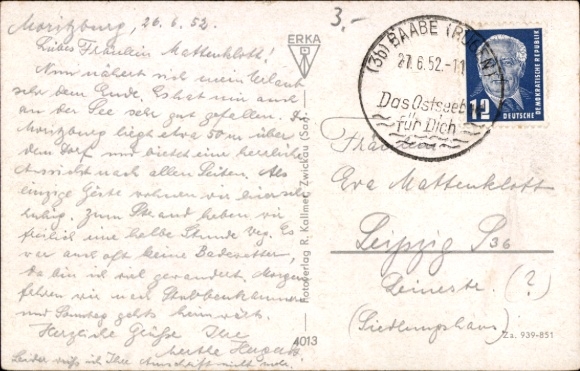 Moritzburg, 26.6.52.
Liebes Fräulein Mattenklott,
Nun nähert sich mein Urlaub
sehr dem Ende. Es hat mir auch
an der See sehr gut gefallen. Die
Moritzburg liegt etwa 50 m über
dem Dorf und bietet eine herrliche
Aussicht nach allen Seiten. Als
einzige Gäste wohnen wir hier sehr
ruhig. Zum Strand haben wir
freilich eine halbe Stunde Weg. Es
war auch oft keine Badewetter,
da bin ich viel gewandert. Morgen
fahren wir nach Stubbenkammer
und Sonntag gehts heimwärts.
Herzliche Grüße Ihre
Leider weiß ich Ihre Anschrift nicht mehr.
3.-
ERKA
Fotoverlag R. Kallmer, Zwickau (Sa.)
4013
(3b) BAABE (RÜGEN)
27.6.52.-11
Das Ostseebad
für Dich
12
DEUTSCHE
DEMOKRATISCHE REPUBLIK
Fräulein
Eva Mattenklott
Leipzig S36
Leinestr. (?)
(Siedlungshaus)
Za. 939-851